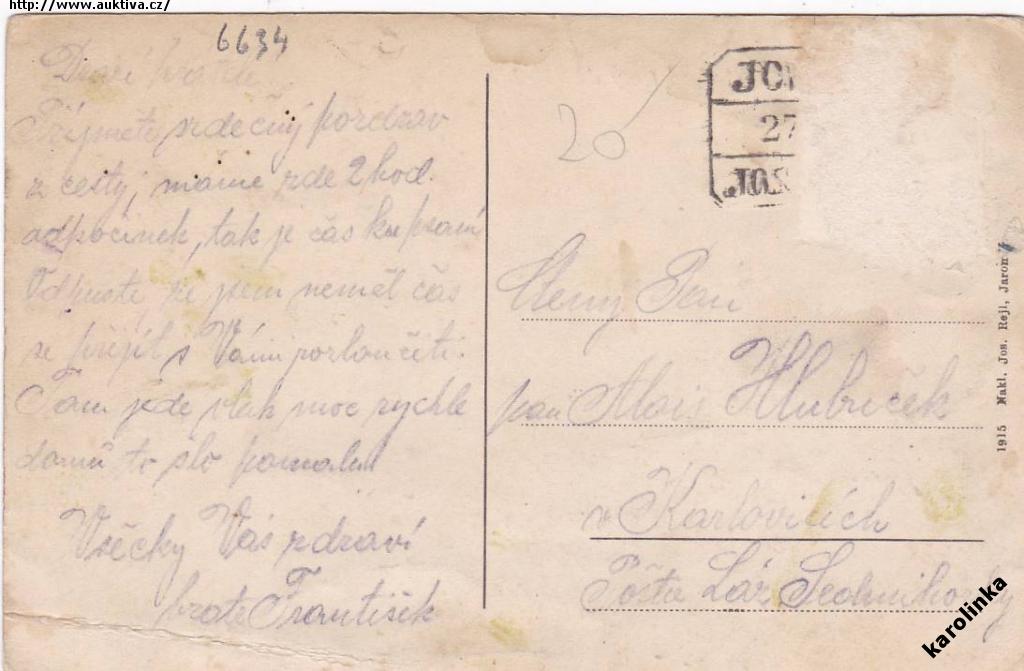 http://www.auktiva.cz/
6634
Drazí
Přijměte srdečný pozdrav
z cesty, máme zde 2 hod.
odpočinek, tak je čas ku psaní
Odpuste že jsem neměl čas
se přijít s Vámi rozloučiti.
Tam jede vlak moc rychle
domů to šlo pomalu
Všecky Vás zdraví
bratr František
20
27
Ctěný Pan
pan Alois Hlubuček
v Karlovicích
Pošta Láz Sedmihorky
1915 Nakl. Jos. Rejl, Jaroměř
karolinka